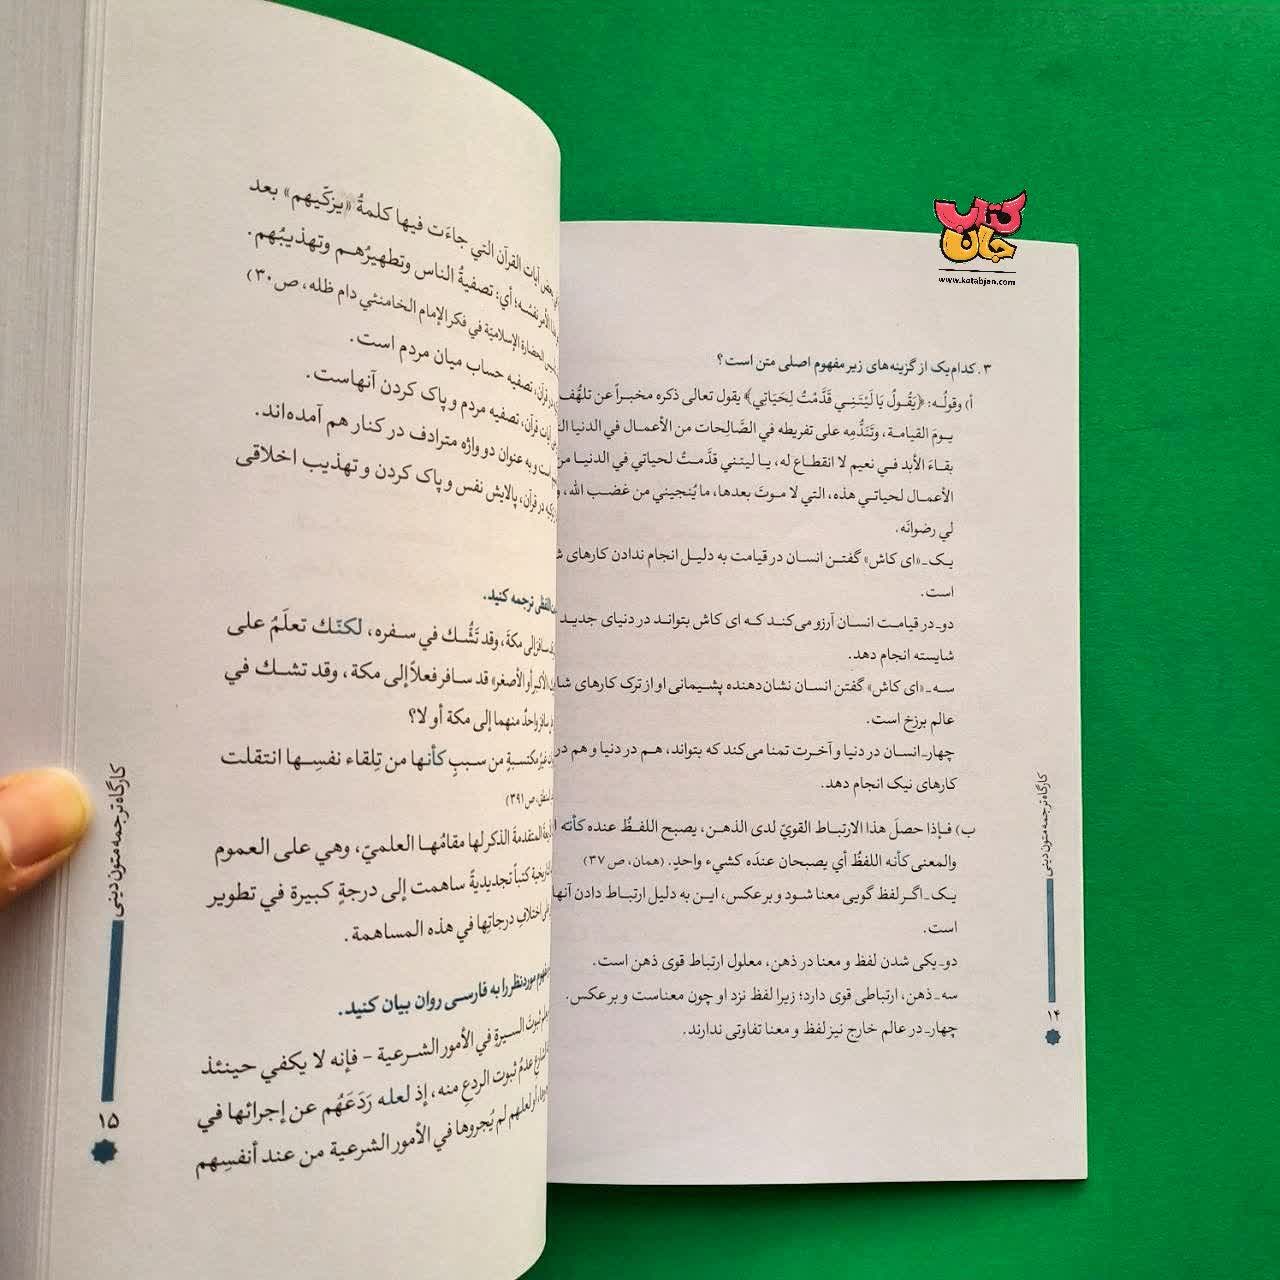 کتاب
جان
www.katabjan.com
۳. کدام‌یک از گزینه‌های زیر مفهوم اصلی متن است؟
أ) وقولُـه: ﴿یَقُولُ یَا لَیْتَنِـي قَدَّمْتُ لِحَیَاتِي﴾ یقول تعالی ذکره مخبراً عن تلهُّف
یـومَ القیامـة، وتَنَدُّمِه علی تفریطه في الصَّالِحات من الأعمـال في الدنیا
بقـاءَ الأبد فـي نعیم لا انقطـاع له، یـا لیتني قدَّمـتُ لحیاتي في الدنیـا
الأعمـال لحیاتـي هذه، التي لا مـوتَ بعدها، ما یُنجیني من غضـب الله،
لي رضوانَه.
یـک_ «ای کاش» گفتـن انسـان در قیامت به دلیـل انجام ندادن کارهای
است.
دو_ در قیامـت انسـان آرزو می‌کنـد که ای کاش بتوانـد در دنیای جدید
شایسته انجام دهد.
سـه_ «ای کاش» گفتـن انسـان نشان‌دهنده پشـیمانی او از ترک کارهای
عالم برزخ است.
چهار_ انسـان در دنیا و آخـرت تمنا می‌کند که بتواند، هـم در دنیا و هم در
کارهای نیک انجام دهد.
ب) فـإذا حصلَ هذا الارتبـاط القويّ لدی الذهـن، یصبح اللفـظُ عنده کأنّه
والمعنی کأنه اللفظُ أي یصبحان عندَه کشيء واحدٍ. (همان، ص ۳۷)
یـک_ اگـر لفظ گویی معنا شـود و برعکس، ایـن به دلیل ارتبـاط دادن آنها
است.
دو_ یکی شدن لفظ و معنا در ذهن، معلول ارتباط قوی ذهن است.
سه_ ذهن، ارتباطی قوی دارد؛ زیرا لفظ نزد او چون معناست و برعکس.
چهار_ در عالم خارج نیز لفظ و معنا تفاوتی ندارند.
کارگاه ترجمه متون دینی
۱۴
آیات القرآن التي جاءَت فیها کلمةُ «یزکّیهم» بعد
الأمر نفسُـه؛ أي: تصفیةُ الناس وتطهیرُهـم وتهذیبُهم.
الحضارة الإسلامیّة في فکر الإمام الخامنئي دام ظله، ص ۳۰)
قرآن، تصفیه حساب میان مردم است.
آیات قرآن، تصفیه مردم و پاک کردن آنهاست.
است و به عنوان دو واژه مترادف در کنار هم آمده‌اند.
در قرآن، پالایش نفس و پاک کردن و تهذیب اخلاقی
ترجمه کنید.
إلی مکةَ، وقد تَشُّـك في سـفره، لکنّك تعلَمُ علی
الأکبر أو الأصغر» قد سـافر فعلاً إلی مکة، وقد تشـك في
واحدٌ منهما إلی مکة أو لا؟
مکتسـبةٍ من سـببٍ کأنها من تِلقاء نفسِـها انتقلت
ص ۳۹۱)
المتقدمة الذکر لها مقامُهـا العلميّ، وهي علی العموم
کتباً تجدیدیةً ساهمت إلی درجةٍ کبیرة في تطویر
اختلافِ درجاتِها في هذه المساهمة.
مفهوم مورد نظر را به فارسـی روان بیان کنید.
ثبوتَ السیرةِ في الأمور الشـرعیة - فإنه لا یکفي حینئذ
عدمُ ثبوت الردعِ منه، إذ لعله رَدَعَهُم عن إجرائها في
أو لعلهم لم یُجروها في الأمور الشرعیة من عند أنفسِهم
کارگاه ترجمه متون دینی
۱۵